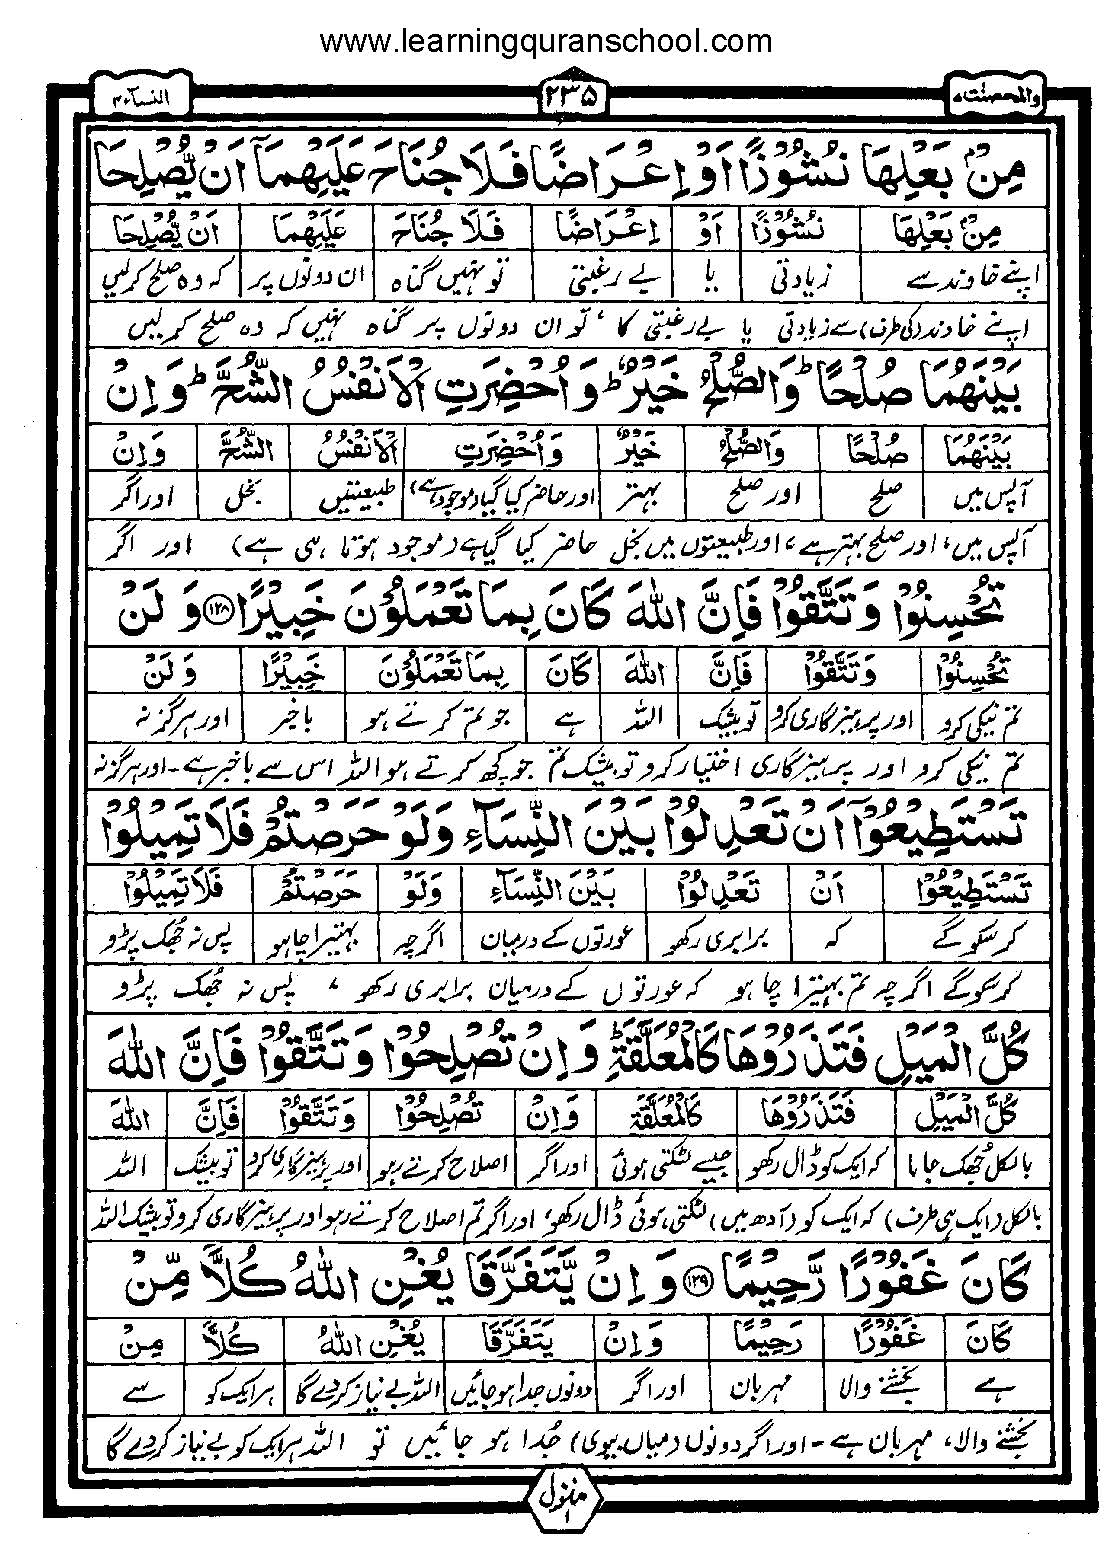 www.learningquranschool.com
والمحصنت ٥
٢٣٥
النسآء ٤
مِنْۢ بَعْلِهَا نُشُوْزًا اَوْ اِعْرَاضًا فَلَا جُنَاحَ عَلَيْهِمَاۤ اَنْ يُّصْلِحَا
مِنْۢ بَعْلِهَا نُشُوْزًا اَوْ اِعْرَاضًا فَلَا جُنَاحَ عَلَيْهِمَا اَنْ يُّصْلِحَا
اپنے خاوند سے زیادتی یا بے رغبتی تو نہیں گناہ ان دونوں پر کہ وہ صلح کرلیں
اپنے خاوند (کی طرف) سے زیادتی یا بے رغبتی کا ، تو ان دونوں پر گناہ نہیں کہ وہ صلح کرلیں
بَيْنَهُمَا صُلْحًا ؕ وَالصُّلْحُ خَيْرٌ ؕ وَاُحْضِرَتِ الْاَنْفُسُ الشُّحَّ ؕ وَاِنْ
بَيْنَهُمَا صُلْحًا وَالصُّلْحُ خَيْرٌ وَاُحْضِرَتِ الْاَنْفُسُ الشُّحَّ وَاِنْ
آپس میں صلح اور صلح بہتر اور حاضر کیا گیا (موجود ہے) طبیعتیں بخل اور اگر
آپس میں، اور صلح بہتر ہے، اور طبیعتوں میں بخل حاضر کیا گیا ہے (موجود ہوتا ہی ہے) اور اگر
تُحْسِنُوْا وَتَتَّقُوْا فَاِنَّ اللّٰهَ كَانَ بِمَا تَعْمَلُوْنَ خَبِيْرًا ۝١٢٨ وَلَنْ
تُحْسِنُوْا وَتَتَّقُوْا فَاِنَّ اللّٰهَ كَانَ بِمَا تَعْمَلُوْنَ خَبِيْرًا وَلَنْ
تم نیکی کرو اور پرہیزگاری کرو تو بیشک اللہ ہے جو تم کرتے ہو باخبر اور ہرگز نہ
تم نیکی کرو اور پرہیزگاری اختیار کرو تو بیشک تم جو کچھ کرتے ہو اللہ اس سے باخبر ہے۔ اور ہرگز نہ
تَسْتَطِيْعُوْۤا اَنْ تَعْدِلُوْا بَيْنَ النِّسَآءِ وَلَوْ حَرَصْتُمْ فَلَا تَمِيْلُوْا
تَسْتَطِيْعُوْا اَنْ تَعْدِلُوْا بَيْنَ النِّسَآءِ وَلَوْ حَرَصْتُمْ فَلَا تَمِيْلُوْا
کرسکو گے کہ برابری رکھو عورتوں کے درمیان اگرچہ بہتیرا چاہو پس نہ جُھک پڑو
کرسکو گے اگرچہ تم بہتیرا چاہو کہ عورتوں کے درمیان برابری رکھو ، پس نہ جُھک پڑو
كُلَّ الْمَيْلِ فَتَذَرُوْهَا كَالْمُعَلَّقَةِ ؕ وَاِنْ تُصْلِحُوْا وَتَتَّقُوْا فَاِنَّ اللّٰهَ
كُلَّ الْمَيْلِ فَتَذَرُوْهَا كَالْمُعَلَّقَةِ وَاِنْ تُصْلِحُوْا وَتَتَّقُوْا فَاِنَّ اللّٰهَ
بالکل جُھک جانا کہ ایک کو ڈال رکھو جیسے لٹکتی ہوئی اور اگر اصلاح کرتے رہو اور پرہیزگاری کرو تو بیشک اللہ
بالکل (ایک ہی طرف) کہ ایک کو (آدھ میں) لٹکتی ہوئی ڈال رکھو، اور اگر تم اصلاح کرتے رہو اور پرہیزگاری کرو تو بیشک اللہ
كَانَ غَفُوْرًا رَّحِيْمًا ۝١٢٩ وَاِنْ يَّتَفَرَّقَا يُغْنِ اللّٰهُ كُلًّا مِّنْ
كَانَ غَفُوْرًا رَحِيْمًا وَاِنْ يَتَفَرَّقَا يُغْنِ اللّٰهُ كُلًّا مِنْ
ہے بخشنے والا مہربان اور اگر دونوں جدا ہو جائیں اللہ بے نیاز کردے گا ہر ایک کو سے
بخشنے والا، مہربان ہے۔ اور اگر دونوں (میاں بیوی) جُدا ہو جائیں تو اللہ ہر ایک کو بے نیاز کردے گا
منزل ١